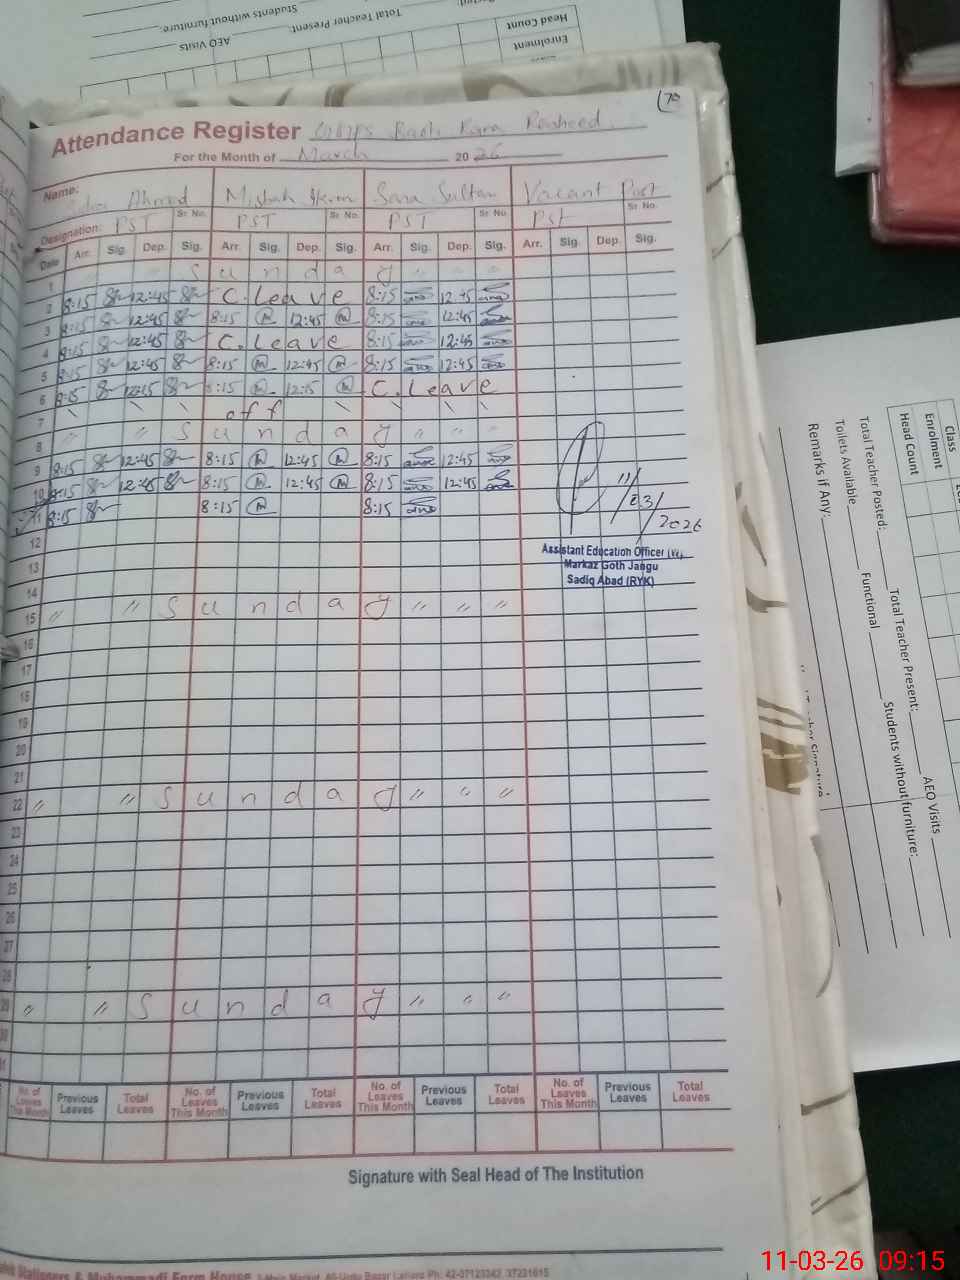 Head Count
Enrolment
Students without furniture:
Total Teacher Present:
AEO Visits
70
Attendance Register GGPS Basti Rana Rasheed
For the Month of March 2026
Name: Ahmad Misbah Sara Sultan Vacant Post
Sr. No. Sr. No. Sr. No. Sr. No.
Designation: PST PST PST PST
Date Arr. Sig. Dep. Sig. Arr. Sig. Dep. Sig. Arr. Sig. Dep. Sig. Arr. Sig. Dep. Sig.
1 " " Sunday " " "
2 8:15 12:45 C. Leave 8:15 12:45
3 8:15 12:45 8:15 12:45 8:15 12:45
4 8:15 12:45 C. Leave 8:15 12:45
5 8:15 12:45 8:15 12:45 8:15 12:45
6 8:15 12:15 8:15 12:15 C. Leave
7 off
8 " " Sunday " " "
9 8:15 12:45 8:15 12:45 8:15 12:45
10 8:15 12:45 8:15 12:45 8:15 12:45
11 8:15 8:15 8:15
11/03/2026
12
Assistant Education Officer
13
Markaz Goth Jangu
Sadiq Abad (RYK)
14
15 " " Sunday " " "
16
17
18
19
20
21
22 " " Sunday " " "
23
24
25
26
27
28
29 " " Sunday " " "
30
31
No. of Leaves This Month Previous Leaves Total Leaves No. of Leaves This Month Previous Leaves Total Leaves No. of Leaves This Month Previous Leaves Total Leaves No. of Leaves This Month Previous Leaves Total Leaves
Signature with Seal Head of The Institution
Stationers & Muhammadi Form House Urdu Bazar Lahore Ph: 42-37123342, 37231615
Class
Enrolment
Head Count
Total Teacher Posted: Total Teacher Present: AEO Visits
Toilets Available Functional Students without furniture:
Remarks if Any:
11-03-26 09:15